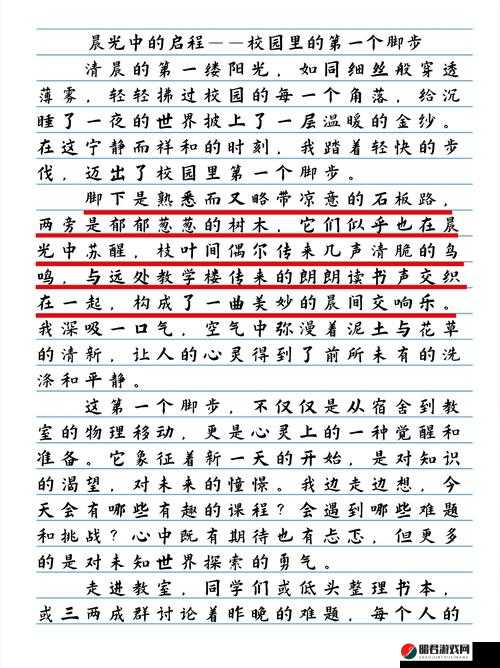 晨光中的启程——校园里的第一个脚步
清晨的第一缕阳光，如同细丝般穿透
薄雾，轻轻拂过校园的每一个角落，给沉
睡了一夜的世界披上了一层温暖的金纱。
在这宁静而祥和的时刻，我踏着轻快的步
伐，迈出了校园里第一个脚步。
脚下是熟悉而又略带凉意的石板路，
两旁是郁郁葱葱的树木，它们似乎也在晨
光中苏醒，枝叶间偶尔传来几声清脆的鸟
鸣，与远处教学楼传来的朗朗读书声交织
在一起，构成了一曲美妙的晨间交响乐。
我深吸一口气，空气中弥漫着泥土与花草
的清新，让人的心灵得到了前所未有的洗
涤和平静。
这第一个脚步，不仅仅是从宿舍到教
室的物理移动，更是心灵上的一种觉醒和
准备。它象征着新一天的开始，是对知识
的渴望，对未来的憧憬。我边走边想，今
天会有哪些有趣的课程？会遇到哪些难题
和挑战？心中既有期待也有忐忑，但更多
的是对未知世界探索的勇气。
走进教室，同学们或低头整理书本，
或三两成群讨论着昨晚的难题，每个人的